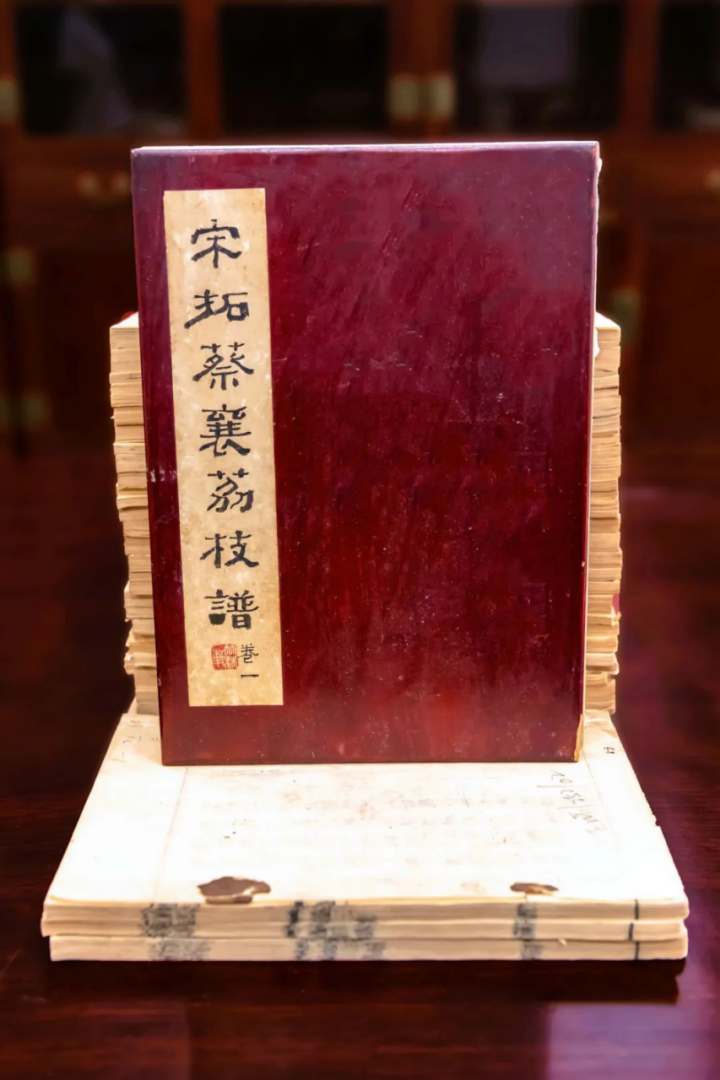 宋拓蔡襄荔枝譜
卷一